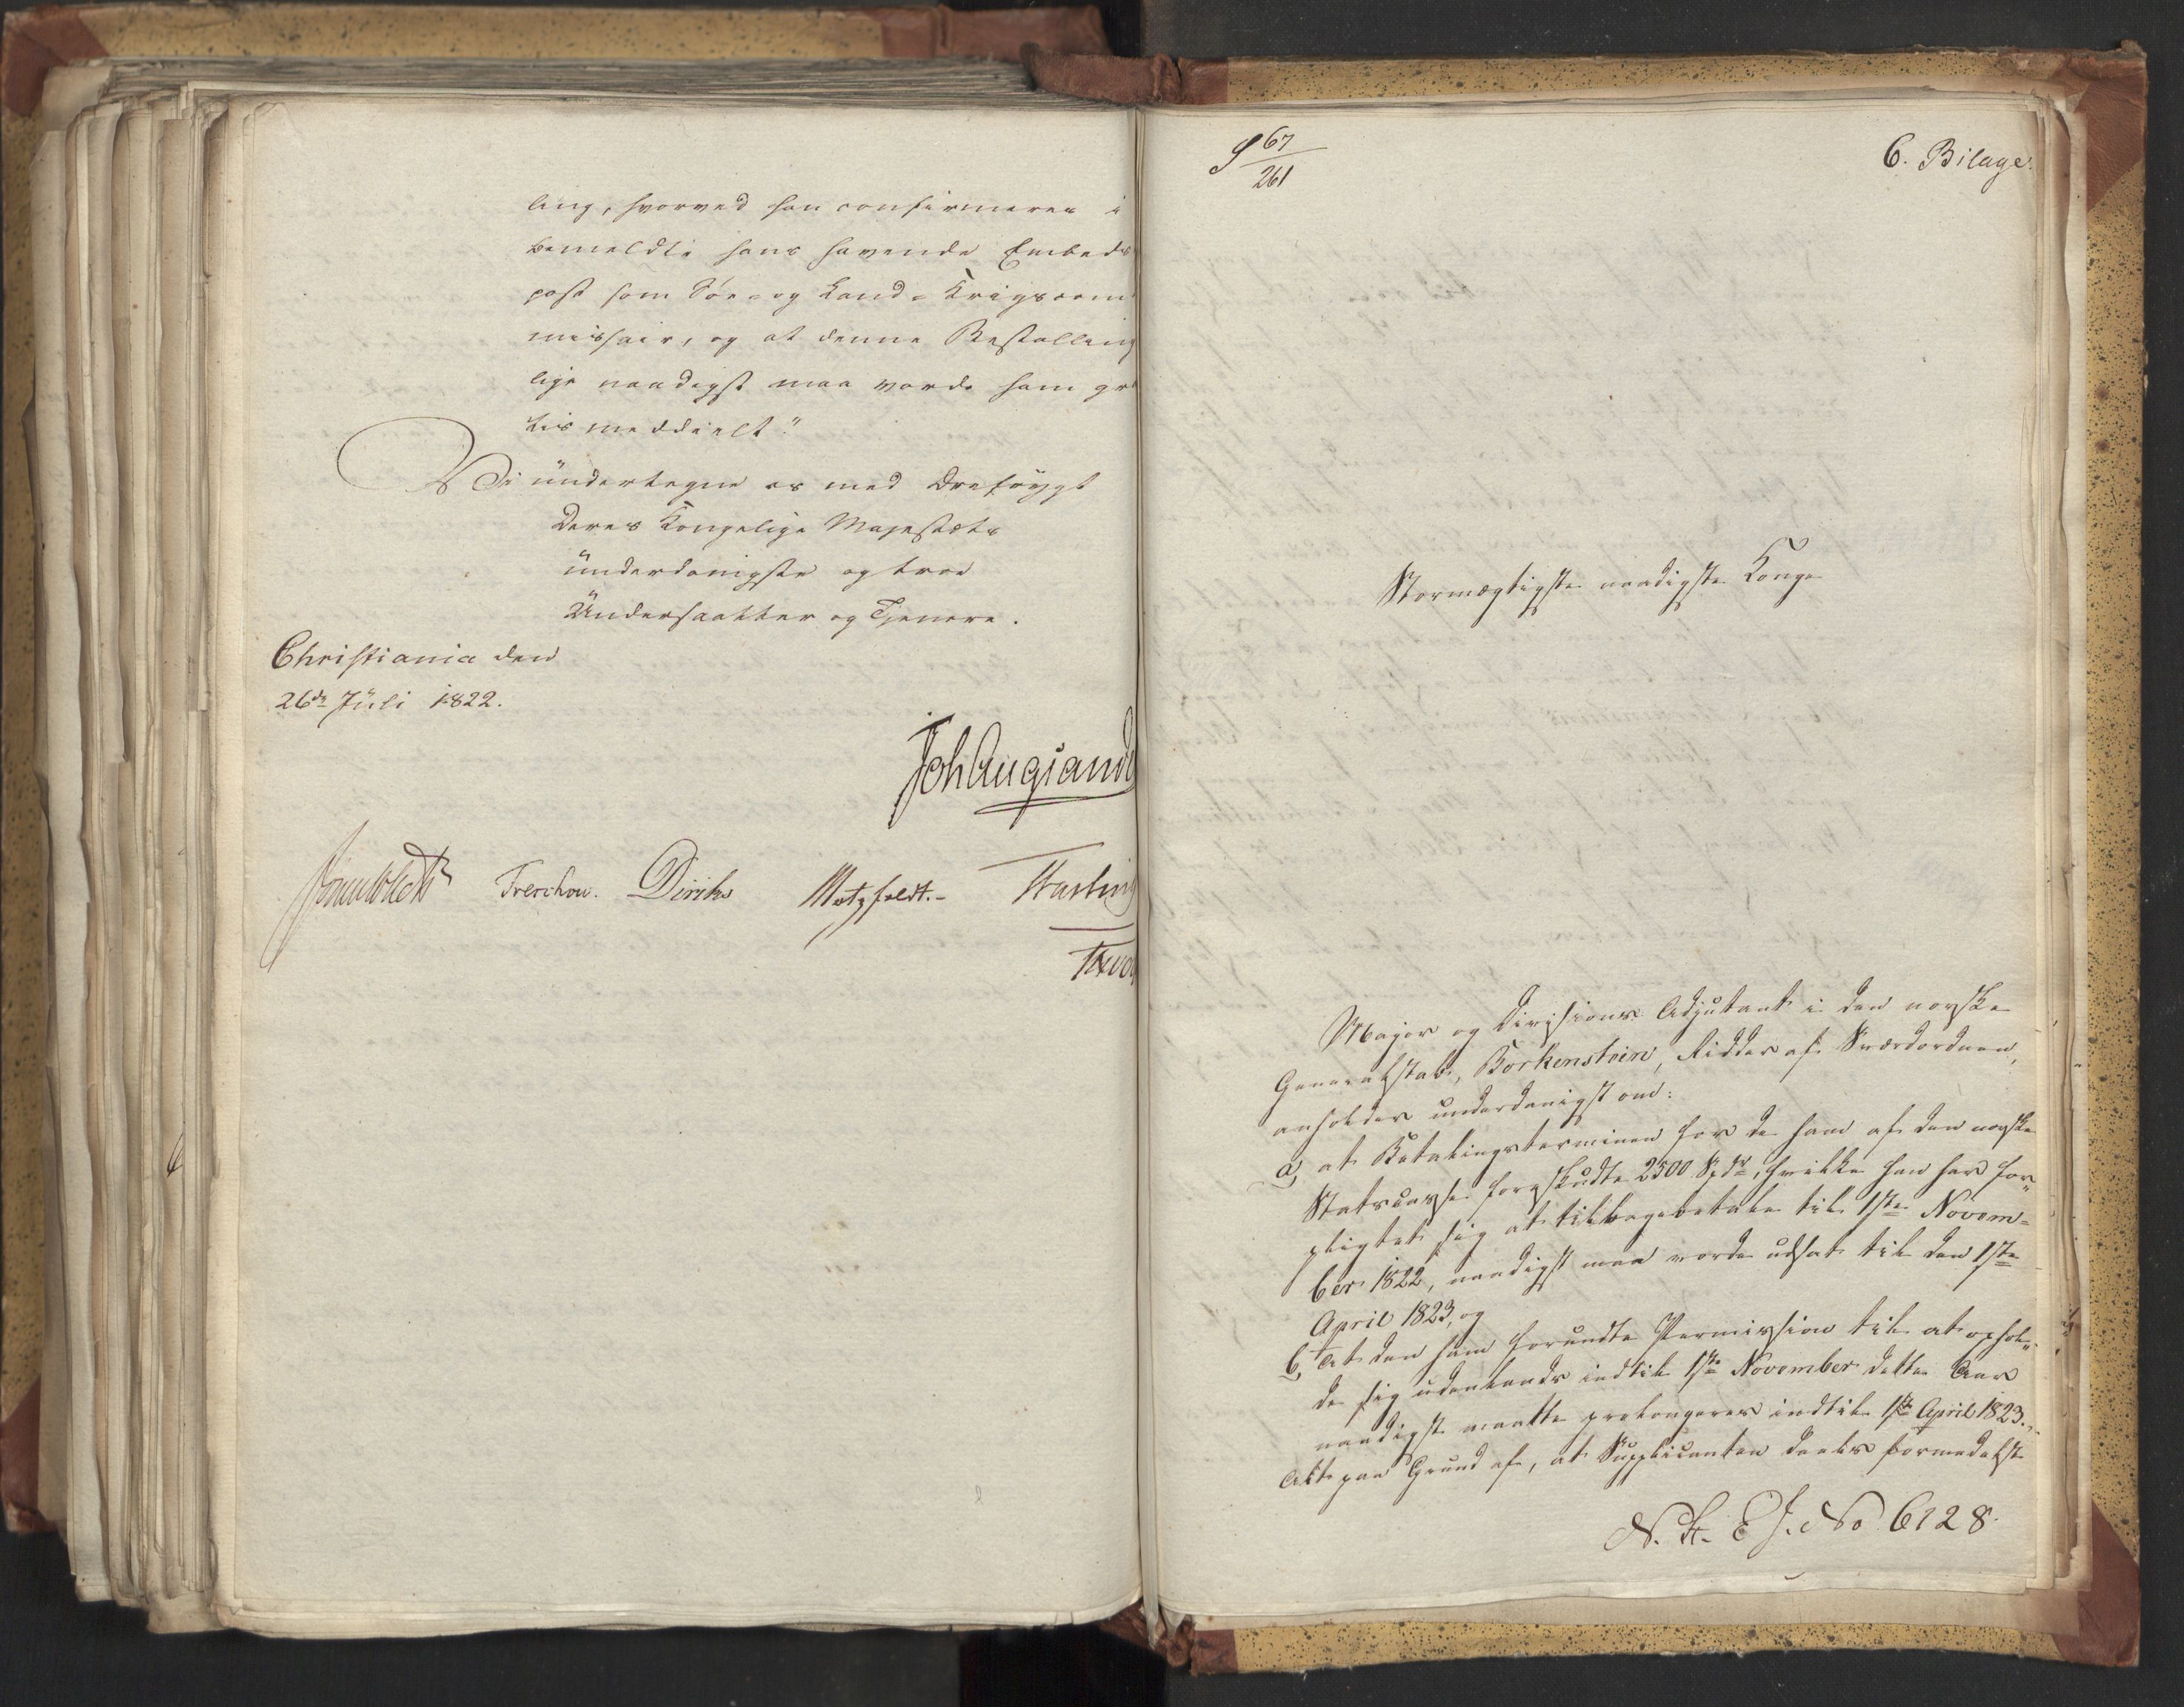 ling, hvorved han confirmeres i
bemeldte hans havende Embeds
post som Söe- og Land- Krigscom
missair, og at denne Bestalling
lige naadigst maa vorde ham gra
tis meddeelt."
Vi undertegne os med Ærefrygt
Deres Kongelige Majestæts
underdanigste og troe
Undersaatter og Tjenere.
Christiania den
26de Juli 1822.
Joh Aug Sand
Sommerhielm Treschow. Diriks Motzfeldt.- Fasting
Krog
S 67/261
6. Bilage.
Stormægtigste naadigste Konge
Major og Divisions Adjutant i den norske
Generalstab, Borkenstein, Ridder af Sværdordenen,
anholder underdanigst om:
a, at Betalingsterminen for de ham af den norske
Statscasse forskudte 2500 Spdr, hvilke han har for„
pligtet sig at tilbagebetale til 1ste Novem=
ber 1822, naadigst maa vorde udsat til den 1ste
April 1823, og
b, At den ham forundte Permission til at ophol„
de sig udenlands indtil 1ste November dette Aar
naadigst maatte prolongeres indtil 1ste April 1823.
Alt paa Grund af, at Supplicanten deels formedelst
N. St. E J. No 6128.